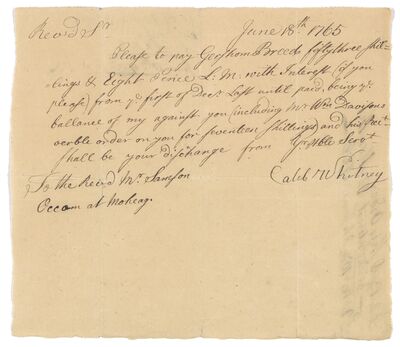 June 18th 1765
Revd Sr
Please to pay Gershom Breed fifty three shil-
-lings & Eight Pence L: M: with Interest (if you
please) from ye first of Decr Last until paid, being ye
ballance of my against you (including Mr Wm Davisons
verble order on you for seventeen shillings) and his Rect
shall be your discharge from Yr Hble Servt
Caleb Whitney
To the Revd Mr Samson
Occom at Moheag